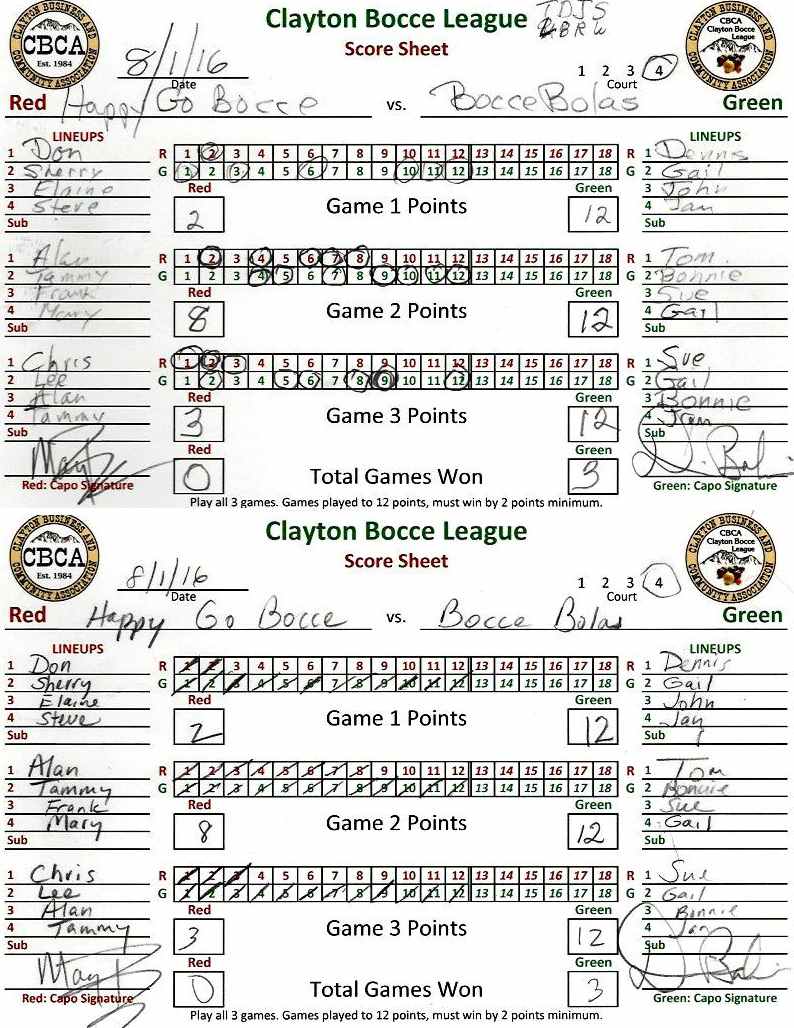 CLAYTON BUSINESS AND COMMUNITY ASSOCIATION
CBCA
Est. 1984
Clayton Bocce League
Score Sheet
TDJS
GBRW
CLAYTON BUSINESS AND COMMUNITY ASSOCIATION
CBCA
Clayton Bocce
League
8/1/16
Date
1 2 3 4
Court
Red Happy Go Bocce vs. Bocce Bolas Green
LINEUPS LINEUPS
1 Don R 1 2 3 4 5 6 7 8 9 10 11 12 13 14 15 16 17 18 R 1 Dennis
2 Sherry G 1 2 3 4 5 6 7 8 9 10 11 12 13 14 15 16 17 18 G 2 Gail
3 Elaine Red Green 3 John
4 Steve 2 Game 1 Points 12 4 Jan
Sub Sub
1 Alan R 1 2 3 4 5 6 7 8 9 10 11 12 13 14 15 16 17 18 R 1 Tom
2 Tammy G 1 2 3 4 5 6 7 8 9 10 11 12 13 14 15 16 17 18 G 2 Bonnie
3 Frank Red Green 3 Sue
4 Mary 8 Game 2 Points 12 4 Gail
Sub Sub
1 Chris R 1 2 3 4 5 6 7 8 9 10 11 12 13 14 15 16 17 18 R 1 Sue
2 Lee G 1 2 3 4 5 6 7 8 9 10 11 12 13 14 15 16 17 18 G 2 Gail
3 Alan Red Green 3 Bonnie
4 Tammy 3 Game 3 Points 12 4 Jan
Sub Red Green Sub
0 Total Games Won 3
Red: Capo Signature Green: Capo Signature
Play all 3 games. Games played to 12 points, must win by 2 points minimum.
CLAYTON BUSINESS AND COMMUNITY ASSOCIATION
CBCA
Est. 1984
Clayton Bocce League
Score Sheet
CLAYTON BUSINESS AND COMMUNITY ASSOCIATION
CBCA
Clayton Bocce
League
8/1/16
Date
1 2 3 4
Court
Red Happy Go Bocce vs. Bocce Bolas Green
LINEUPS LINEUPS
1 Don R 1 2 3 4 5 6 7 8 9 10 11 12 13 14 15 16 17 18 R 1 Dennis
2 Sherry G 1 2 3 4 5 6 7 8 9 10 11 12 13 14 15 16 17 18 G 2 Gail
3 Elaine Red Green 3 John
4 Steve 2 Game 1 Points 12 4 Jan
Sub Sub
1 Alan R 1 2 3 4 5 6 7 8 9 10 11 12 13 14 15 16 17 18 R 1 Tom
2 Tammy G 1 2 3 4 5 6 7 8 9 10 11 12 13 14 15 16 17 18 G 2 Bonnie
3 Frank Red Green 3 Sue
4 Mary 8 Game 2 Points 12 4 Gail
Sub Sub
1 Chris R 1 2 3 4 5 6 7 8 9 10 11 12 13 14 15 16 17 18 R 1 Sue
2 Lee G 1 2 3 4 5 6 7 8 9 10 11 12 13 14 15 16 17 18 G 2 Gail
3 Alan Red Green 3 Bonnie
4 Tammy 3 Game 3 Points 12 4 Jan
Sub Red Green Sub
0 Total Games Won 3
Red: Capo Signature Green: Capo Signature
Play all 3 games. Games played to 12 points, must win by 2 points minimum.